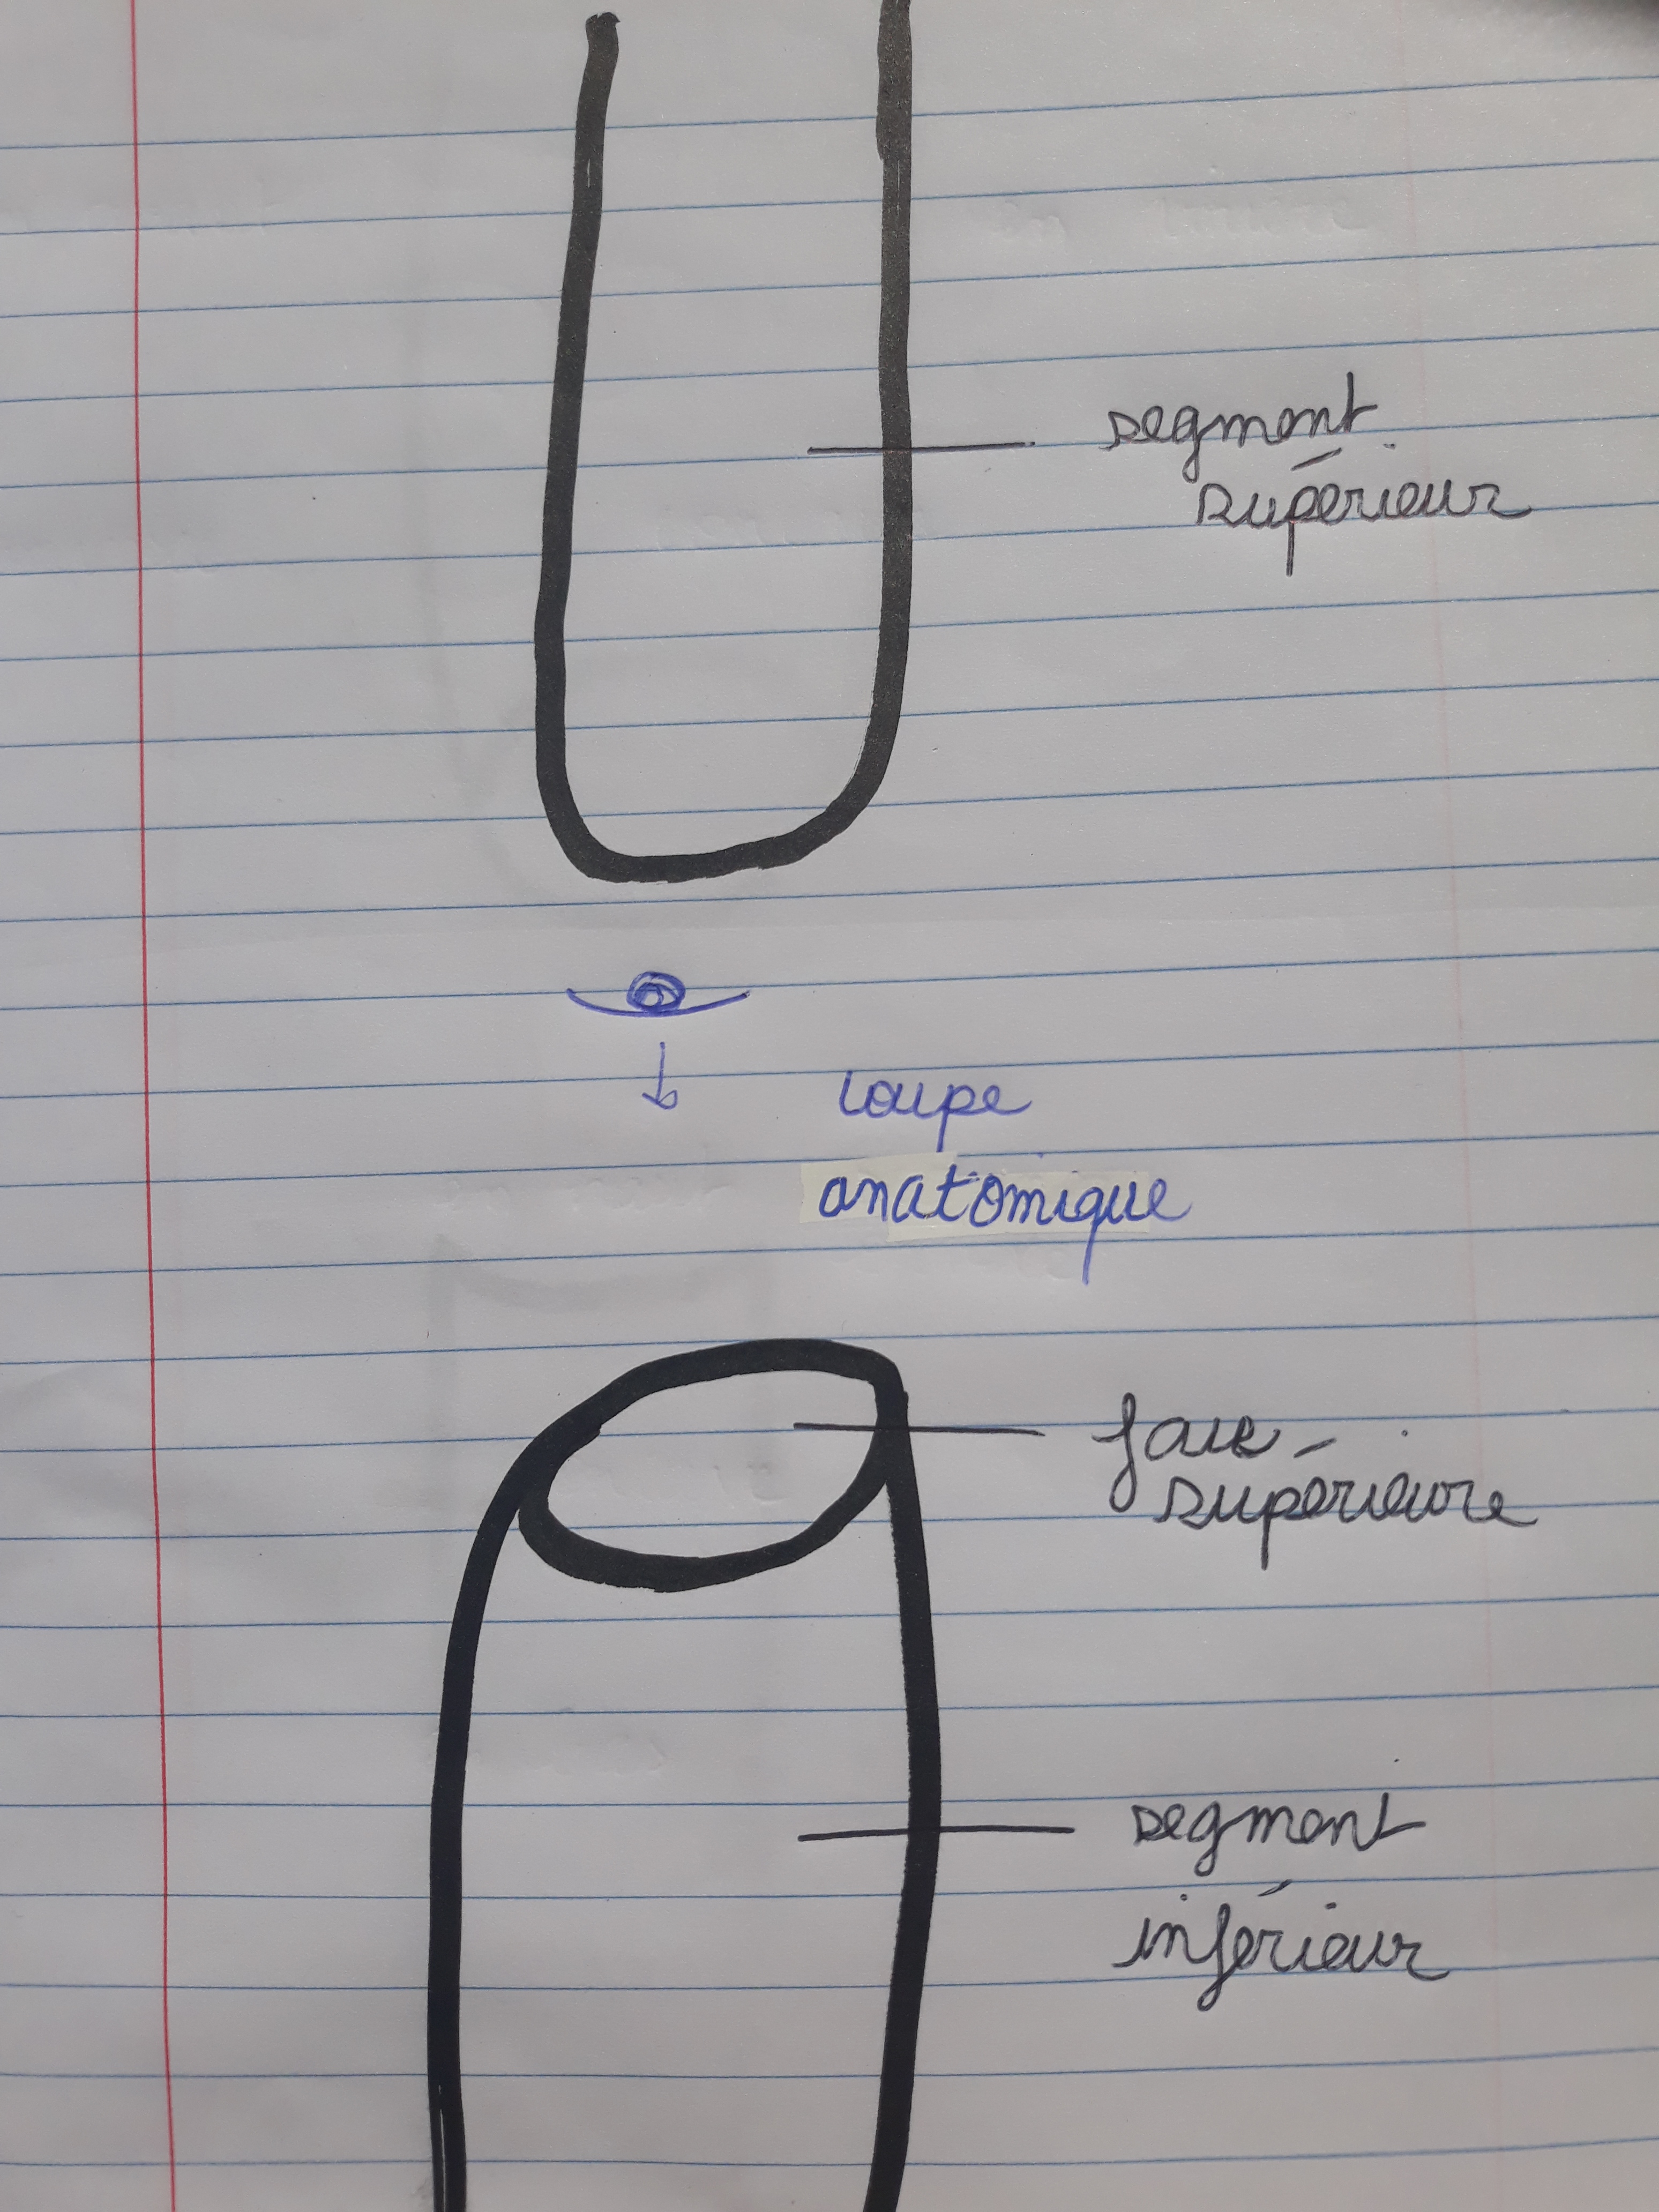 segment
supérieur
coupe
anatomique
face
supérieure
segment
inférieur